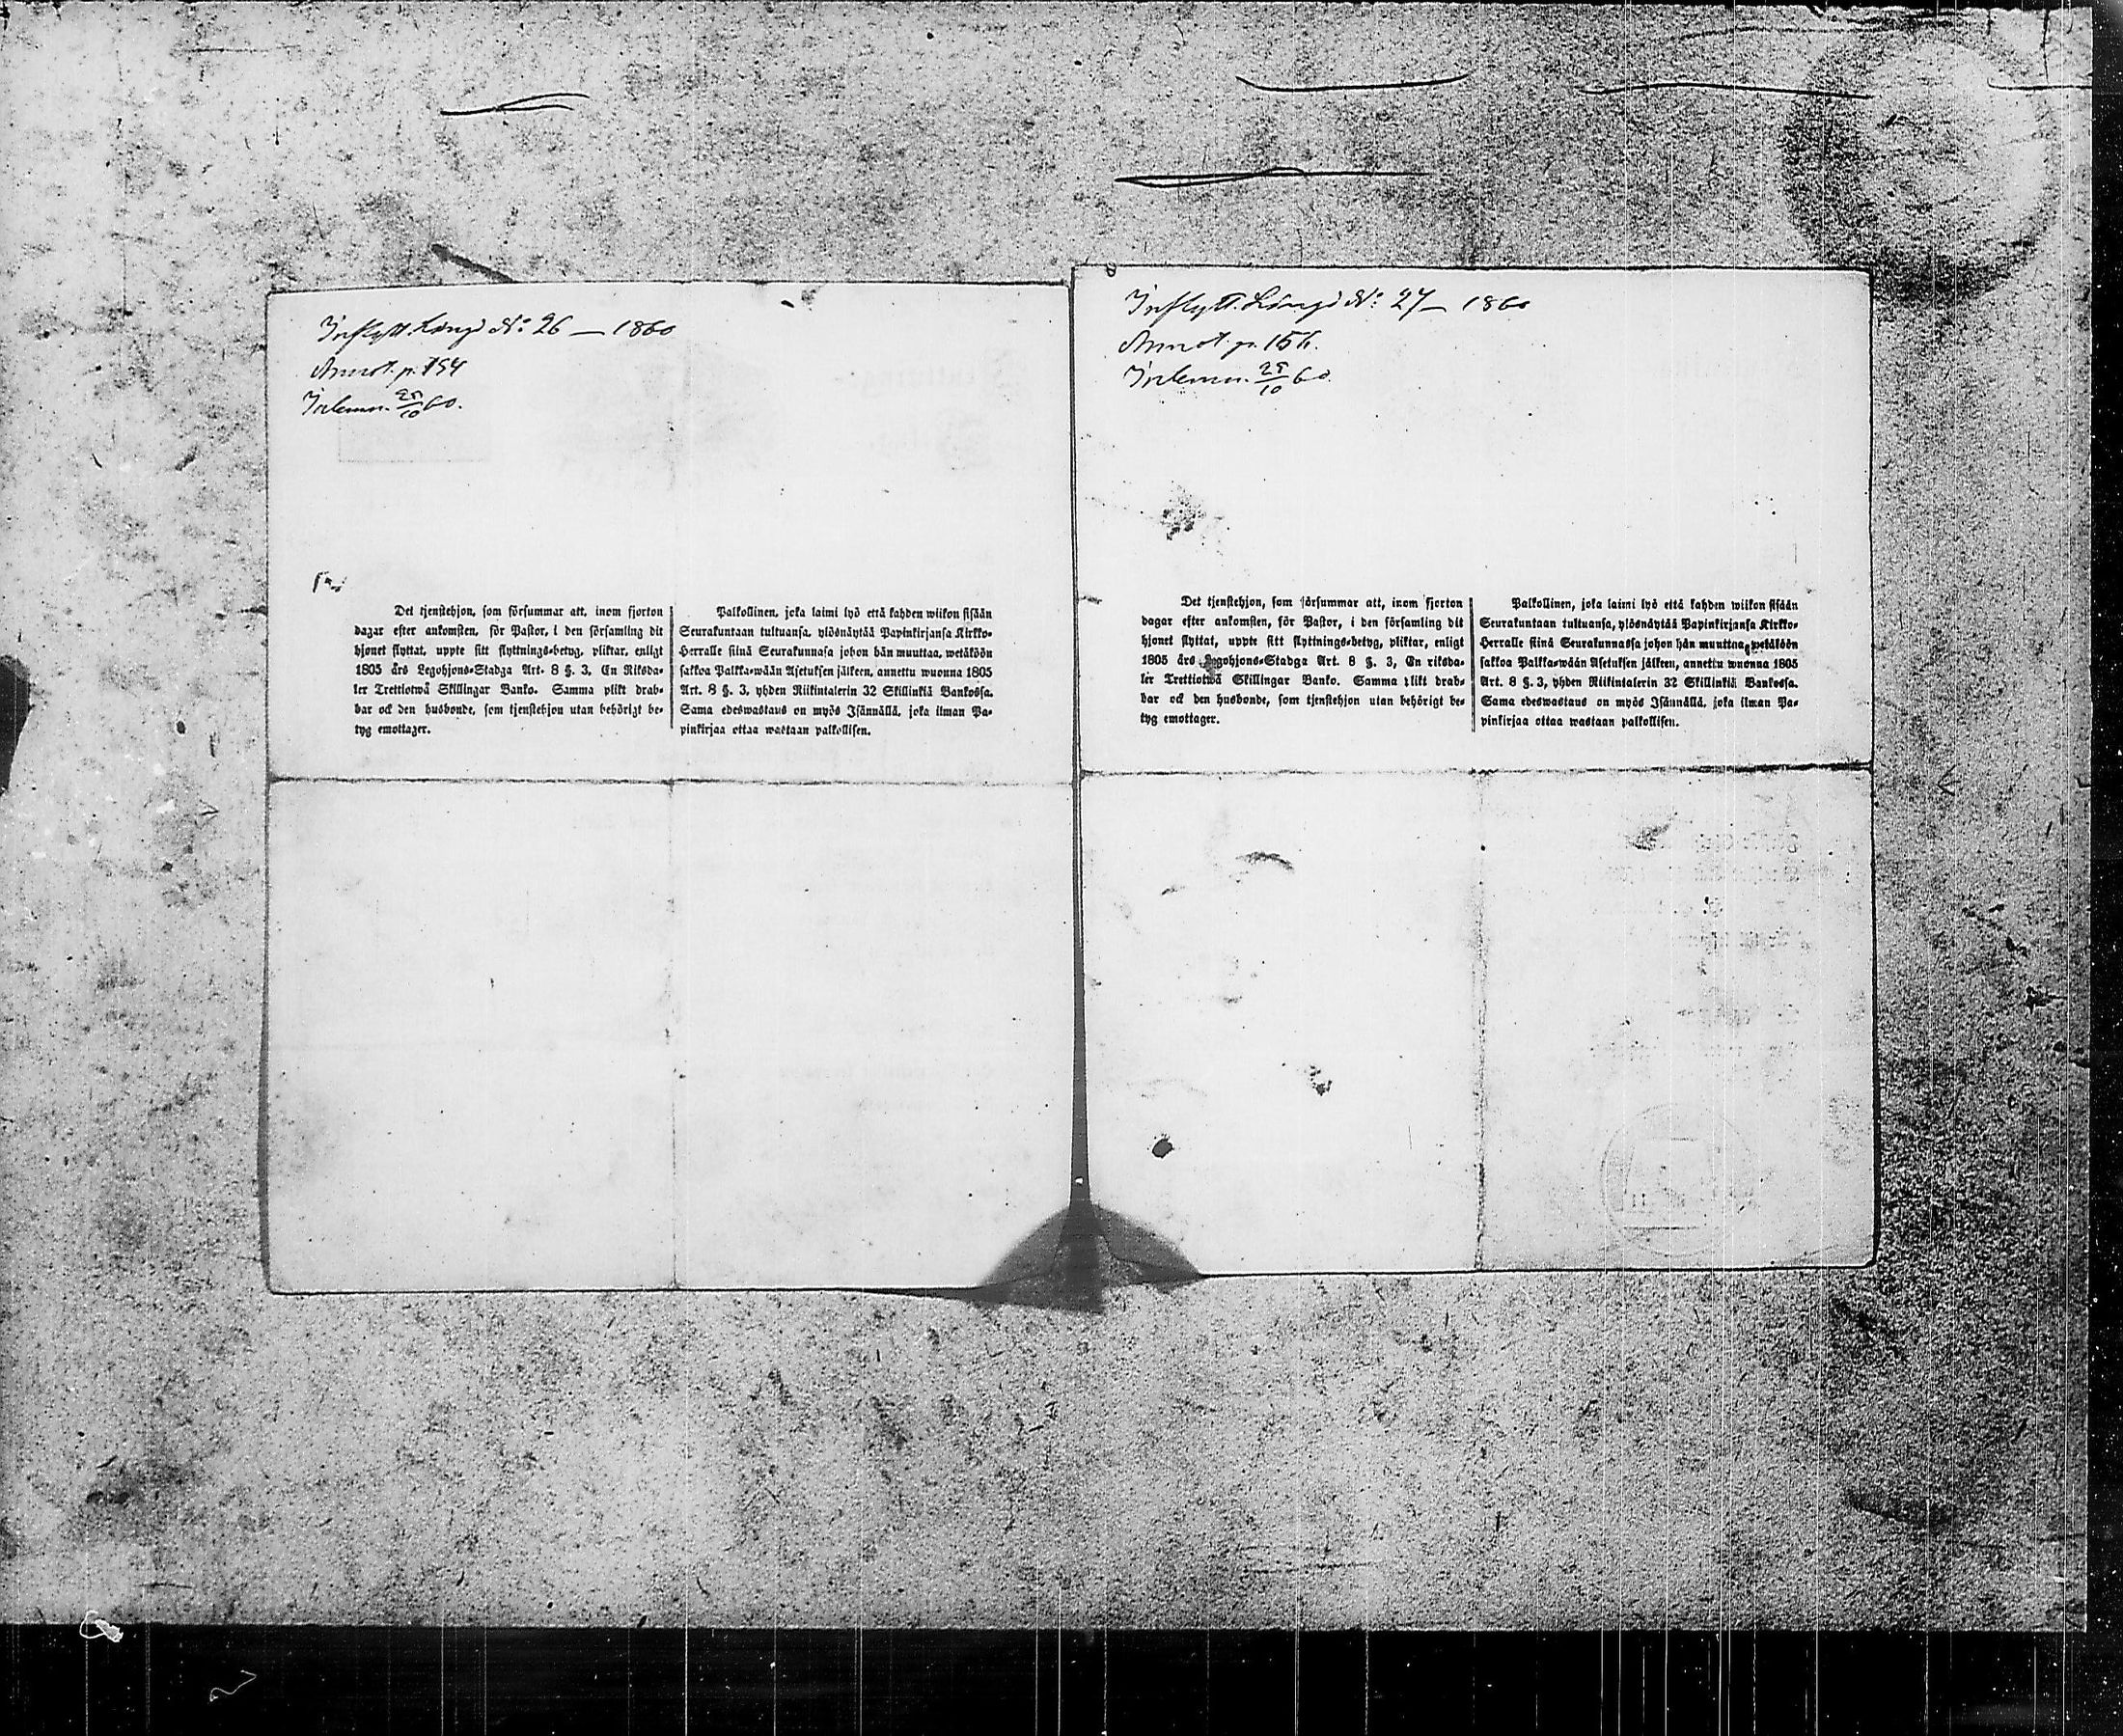 Inflytt. Längd No: 26 — 1860
Annot. p. 154
Inlemn. 25/10 60.
Det tjenstehjon, som försummar att, inom fjorton
dagar efter ankomsten, för Pastor, i den församling dit
hjonet flyttat, uppte sitt flyttnings-betyg, pliktar, enligt
1805 års Legohjons-Stadga Art. 8 §. 3, En Riksda-
ler Trettiotwå Skillingar Banko. Samma plikt drab-
bar ock den husbonde, som tjenstehjon utan behörigt be-
tyg emottager.
Palkollinen, joka laimi lyö että kahden wiikon sisään
Seurakuntaan tultuansa, ylösnäytää Papinkirjansa Kirkko-
Herralle siinä Seurakunnasa johon hän muuttaa, wetäköön
sakkoa Palkka-wään Asetuksen jälkeen, annettu wuonna 1805
Art. 8 §. 3, yhden Riikintalerin 32 Skillinkiä Bankossa.
Sama edeswastaus on myös Isännällä, joka ilman Pa-
pinkirjaa ottaa wastaan palkollisen.
Inflytt. Längd No: 27 — 1860
Annot. p. 154.
Inlemn. 25/10 60.
Det tjenstehjon, som försummar att, inom fjorton
dagar efter ankomsten, för Pastor, i den församling dit
hjonet flyttat, uppte sitt flyttnings-betyg, pliktar, enligt
1805 års Legohjons-Stadga Art. 8 §. 3, En riksda-
ler Trettiotwå Skillingar Banko. Samma plikt drab-
bar ock den husbonde, som tjenstehjon utan behörigt be-
tyg emottager.
Palkollinen, joka laimi lyö että kahden wiikon sisään
Seurakuntaan tultuansa, ylösnäytää Papinkirjansa Kirkko-
Herralle siinä Seurakunnassa johon hän muuttaa, wetäköön
sakkoa Palkka-wään Asetuksen jälkeen, annettu wuonna 1805
Art. 8 §. 3, yhden Riikintalerin 32 Skillinkiä Bankossa.
Sama edeswastaus on myös Isännällä, joka ilman Pa-
pinkirjaa ottaa wastaan palkollisen.